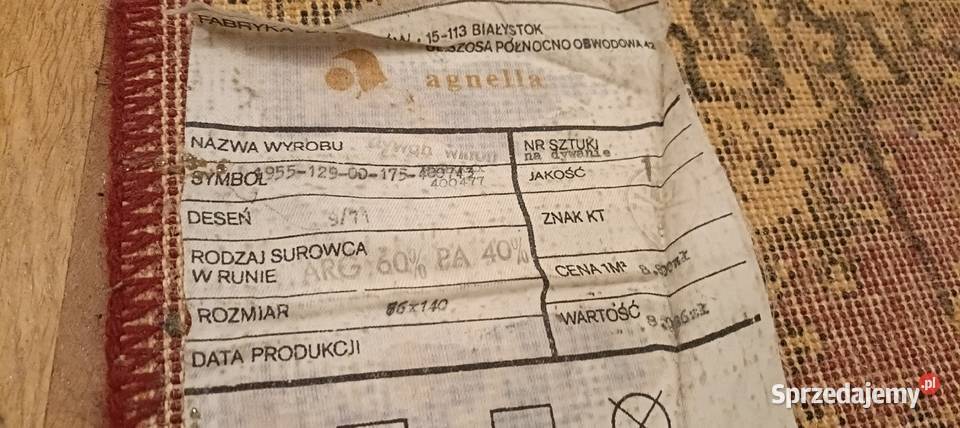 FABRYKA 15-113 BIAŁYSTOK
SZOSA PÓŁNOCNO OBWODOWA 42
agnella
NAZWA WYROBU dywan
NR SZTUKI
na dywanie
SYMBOL 1955-129-00-175-
400477
JAKOŚĆ I
DESEŃ 9/71
ZNAK KT
RODZAJ SUROWCA
W RUNIE ARG 60% PA 40%
CENA 1M²
ROZMIAR 86x140
WARTOŚĆ
DATA PRODUKCJI
Sprzedajemy.pl